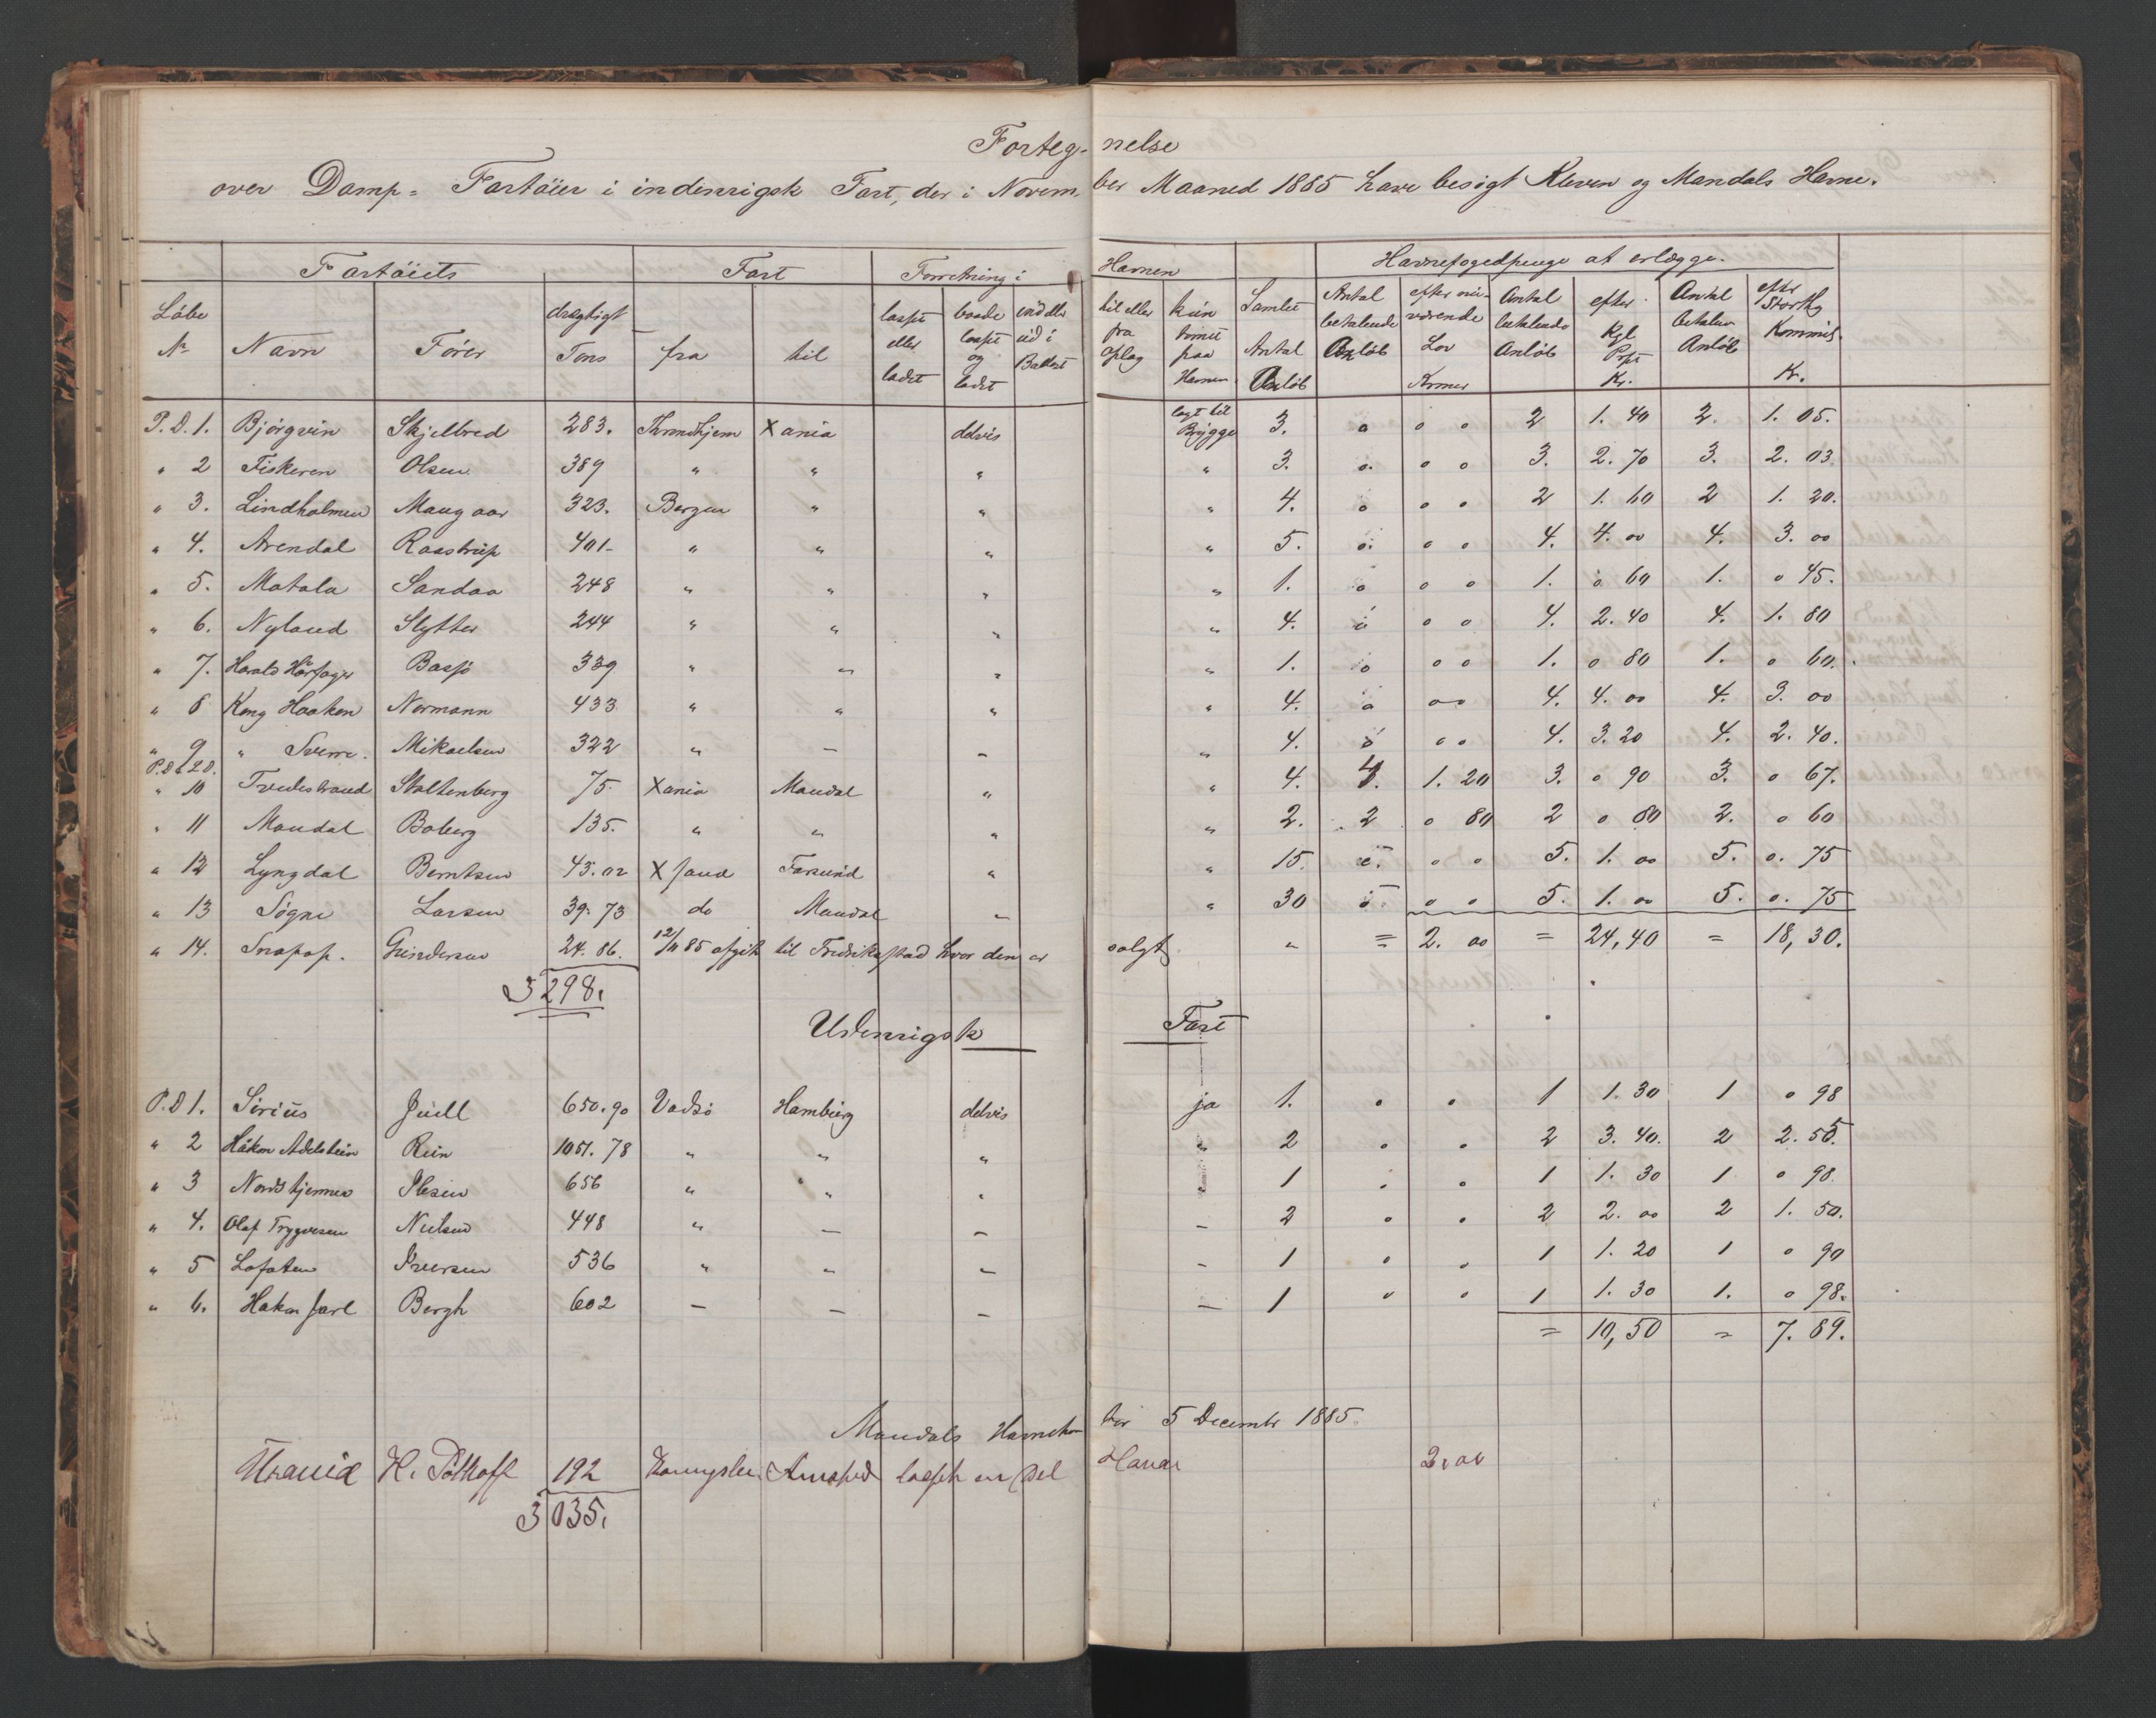 Forteg- nelse
over Damp- Fartöier i indenrigsk Fart, der i Novem- ber Maaned 1885 have besögt Kleven og Mandals Havne.
Fartöiets Fart Forretning i Havnen Havnefogedpenge at erlægge.
Löbe No Navn Förer drægtigt Tons fra til losset eller ladet baade losset og ladet ind eller ud i Ballast til eller fra Oplag kun inde paa Havnen Samlet Antal Anlöb Antal betalende Anlöb efter nu- værende Lov Kroner Antal betalende Anlöb efter Kgl Prp Kr. Antal betalen Anlöb efter Storth Kommis. Kr.
P.D. 1. Björgvin Skjelbred 283. Throndhjem Xania delvis lagt til Brygge 3. o o o 2 1. 40 2. 1. 05.
" 2 Fiskeren Olsen 389 " " " " 3. o. o o 3. 2. 70 3. 2. 03
" 3. Lindholmen Maugaar 323. Bergen " " " 4. o o o 2 1. 60 2 1. 20.
" 4. Arendal Raastrup 401- " " " " 5. o. o o 4. 4. oo 4. 3. oo
" 5. Motala Sandaa 248 " " " " 1. o o o 1. o 60 1. o 45.
" 6. Nyland Slytter 244 " " " " 4. o o o 4. 2. 40 4. 1. 80
" 7. Harald Hårfager Bassö 339 " " " " 1. o o o 1. o 80 1. o 60.
" 8 Kong Haakon Normann 433 " " " " 4. o o o 4. 4. oo 4. 3. oo
" 9 " Sverre. Mikaelsen 322 " — — " 4. o o o 4. 3. 20 4. 2. 40.
P.D.
" 10 Tvedestrand Stoltenberg 75. Xania Mandal " " 4. 4. 1. 20 3. o 90 3. o 67.
" 11 Mandal Boberg 135. " " " " 2. 2 o 80 2 o 80 2. o 60
" 12 Lyngdal Berntsen 43. 02 Xsand Farsund " " 15. o. o o 5. 1. oo 5. o. 75
" 13 Sögne Larsen 39. 73 do Mandal " " 30 o. o o 5. 1. oo 5. o. 75
" 14. Snapop. Gundersen 24. 86. 12/11 85 afgik til Fredrikstad hvor den er solgt " = 2. oo = 24,40 = 18, 30.
3298.
Udenrigsk Fart
P.D 1. Sirius Juell 650. 90 Vadsö Hamburg delvis ja 1. " " 1 1. 30 1 o 98
" 2 Håkon Adelstein Rein 1051. 78 " " " " 2 " " 2 3. 40. 2 2. 55.
" 3 Nordstjernen Ibsen 656 " " " " 1 " " 1 1. 30 1 o 98.
" 4. Olaf Trygvesen Nielsen 448 " — — — 2 " " 2 2. oo 2 1. 50.
" 5 Lofoten Iversen 536 " " — — 1 " " 1 1. 20 1 o 90
" 6. Hakon Jarl Bergh 602 — — — — 1 " " 1 1. 30 1. o 98.
= 10,50 = 7. 89.
Mandals Havnekon tor 5 Decembr 1885.
Urania H. 192 en Del 2.00
3035.